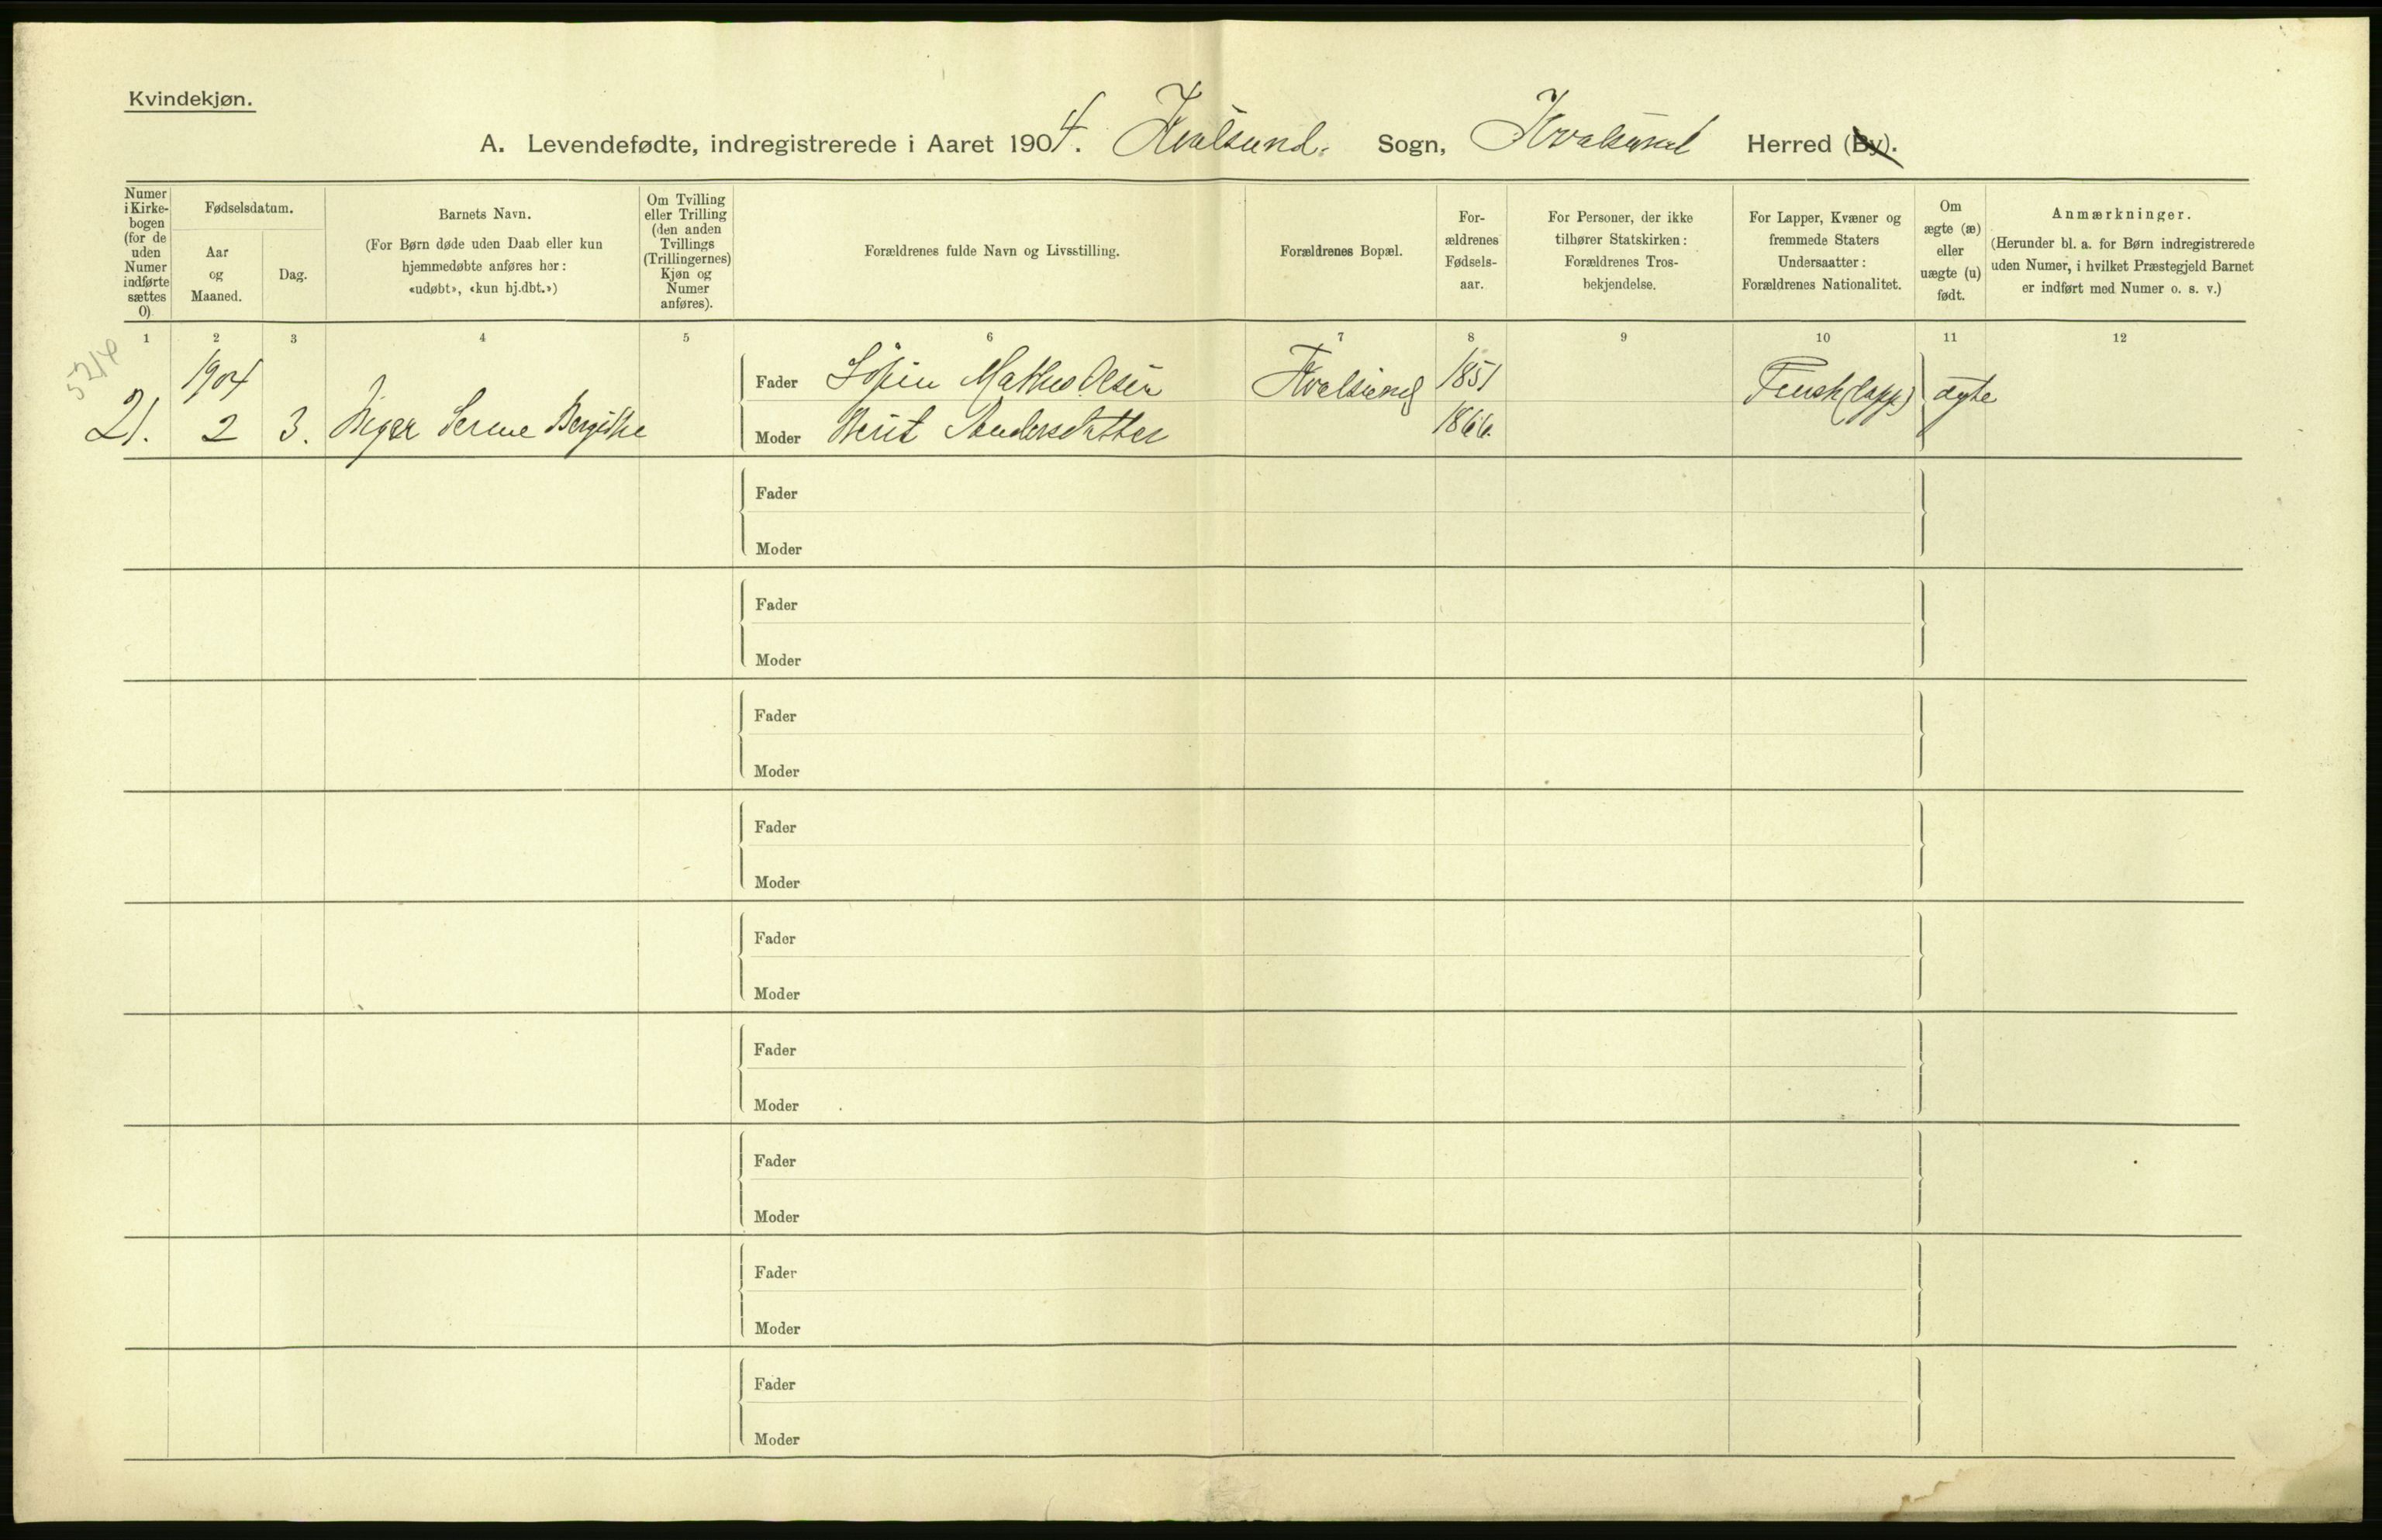 Kvindekjøn.
A. Levendefødte, indregistrerede i Aaret 1904. Kvalsund. Sogn, Kvalsund Herred (By).
Numer i Kirke-bogen (for de uden Numer indførte sættes 0).
Fødselsdatum.
Aar og Maaned.
Dag.
Barnets Navn.
(For Børn døde uden Daab eller kun
hjemmedøbte anføres her:
«udøbt», «kun hj.dbt.»)
Om Tvilling
eller Trilling
(den anden
Tvillings
(Trillingernes)
Kjøn og
Numer
anføres).
Forældrenes fulde Navn og Livsstilling.
Forældrenes Bopæl.
For-
ældrenes
Fødsels-
aar.
For Personer, der ikke
tilhører Statskirken:
Forældrenes Tros-
bekjendelse.
For Lapper, Kvæner og
fremmede Staters
Undersaatter:
Forældrenes Nationalitet.
Om
ægte (æ)
eller
uægte (u)
født.
Anmærkninger.
(Herunder bl. a. for Børn indregistrerede
uden Numer, i hvilket Præstegjeld Barnet
er indført med Numer o. s. v.)
1 2 3 4 5 6 7 8 9 10 11 12
5214
1904
Fader Mathis Olsen Kvalsund 1851 (lapp) ægte
21. 2 3. Inger Serine Moder Berit Andersdatter 1866.
Fader
Moder
Fader
Moder
Fader
Moder
Fader
Moder
Fader
Moder
Fader
Moder
Fader
Moder
Fader
Moder
Fader
Moder